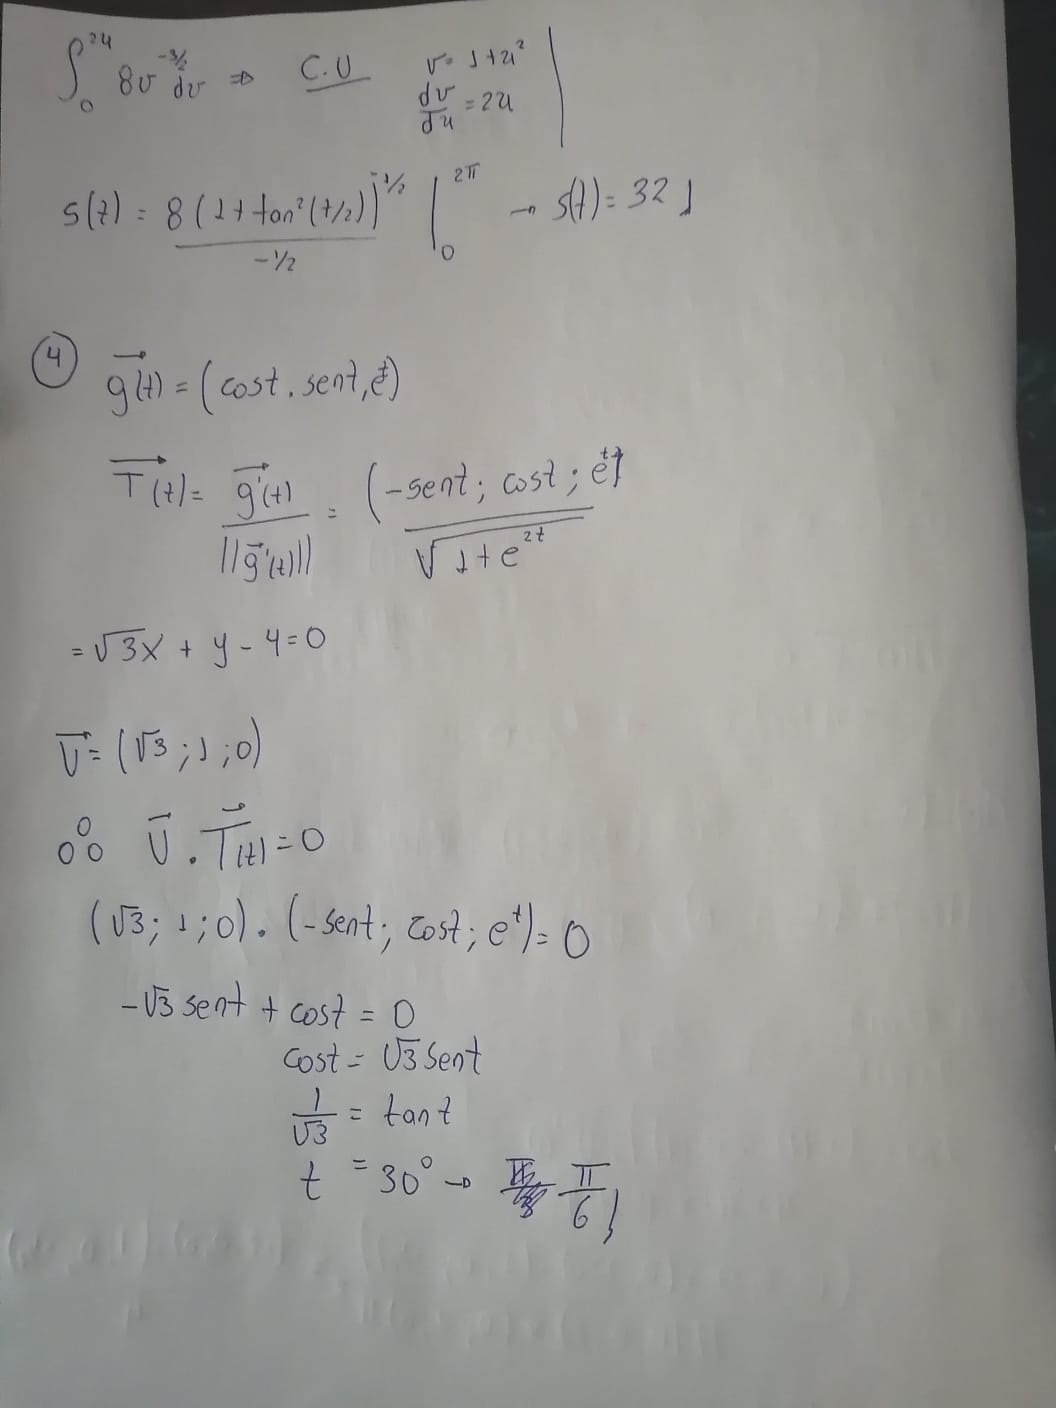 ∫₀²⁴ 8v^(-3/2) dv ⇒ C.U v = 1+u²
dv/du = 2u
s(t) = 8(1+tan²(t/2))^(-1/2) / (-1/2) |₀^(2π) → s(t) = 32
4 g(t) = (cost, sent, e^t)
T(t) = g'(t) / ||g'(t)|| = (-sent; cost; e^t) / √(1+e^(2t))
= √3x + y - 4 = 0
U = (√3; 1; 0)
∴ U . T(t) = 0
(√3; 1; 0) . (-sent; cost; e^t) = 0
-√3 sent + cost = 0
cost = √3 sent
1/√3 = tan t
t = 30° → π/6